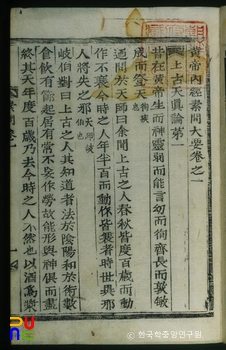 黃帝內經素問大要卷之一
上古天真論第一
昔在黃帝生而神靈弱而能言幼而徇齊長而敦敏
成而登天
迺問於天師曰余聞上古之人春秋皆度百歲而動
作不衰今時之人年半百而動作皆衰者時世異耶
人將失之耶
岐伯對曰上古之人其知道者法於陰陽和於術數
食飮有節起居有常不妄作勞故能形與神俱而盡
終其天年度百歲乃去今時之人不然也以酒爲漿
한국학중앙연구원